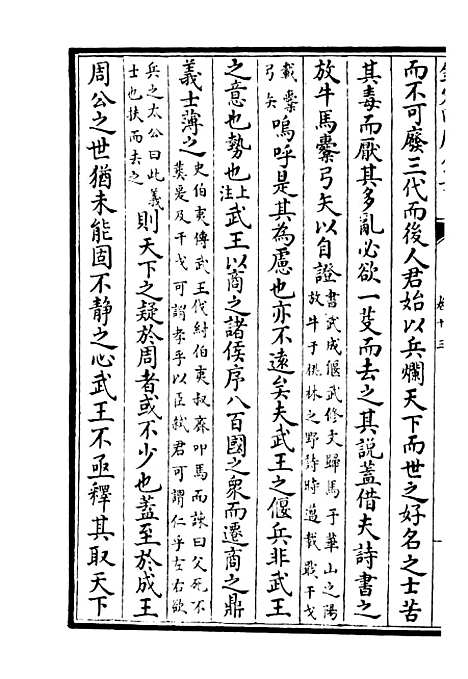 而不可廢三代而後人君始以兵爛天下而世之好名之士苦
其毒而厭其多亂必欲一芟而去之其說蓋借夫詩書之
放牛馬櫜弓矢以自證書武成偃武修文歸馬于華山之陽放牛于桃林之野詩時邁載戢干戈
載櫜弓矢嗚呼是其為慮也亦不遠矣夫武王之偃兵非武王
之意也勢也上注武王以商之諸侯序八百國之衆而遷商之鼎
義士薄之史伯夷傳武王伐紂伯夷叔齊叩馬而諌曰父死不葬是及干戈可謂孝乎以臣弑君可謂仁乎左右欲
兵之太公曰此義士也扶而去之則天下之疑於周者或不少也蓋至於成王
周公之世猶未能固不靜之心武王不亟釋其取天下
卷十三